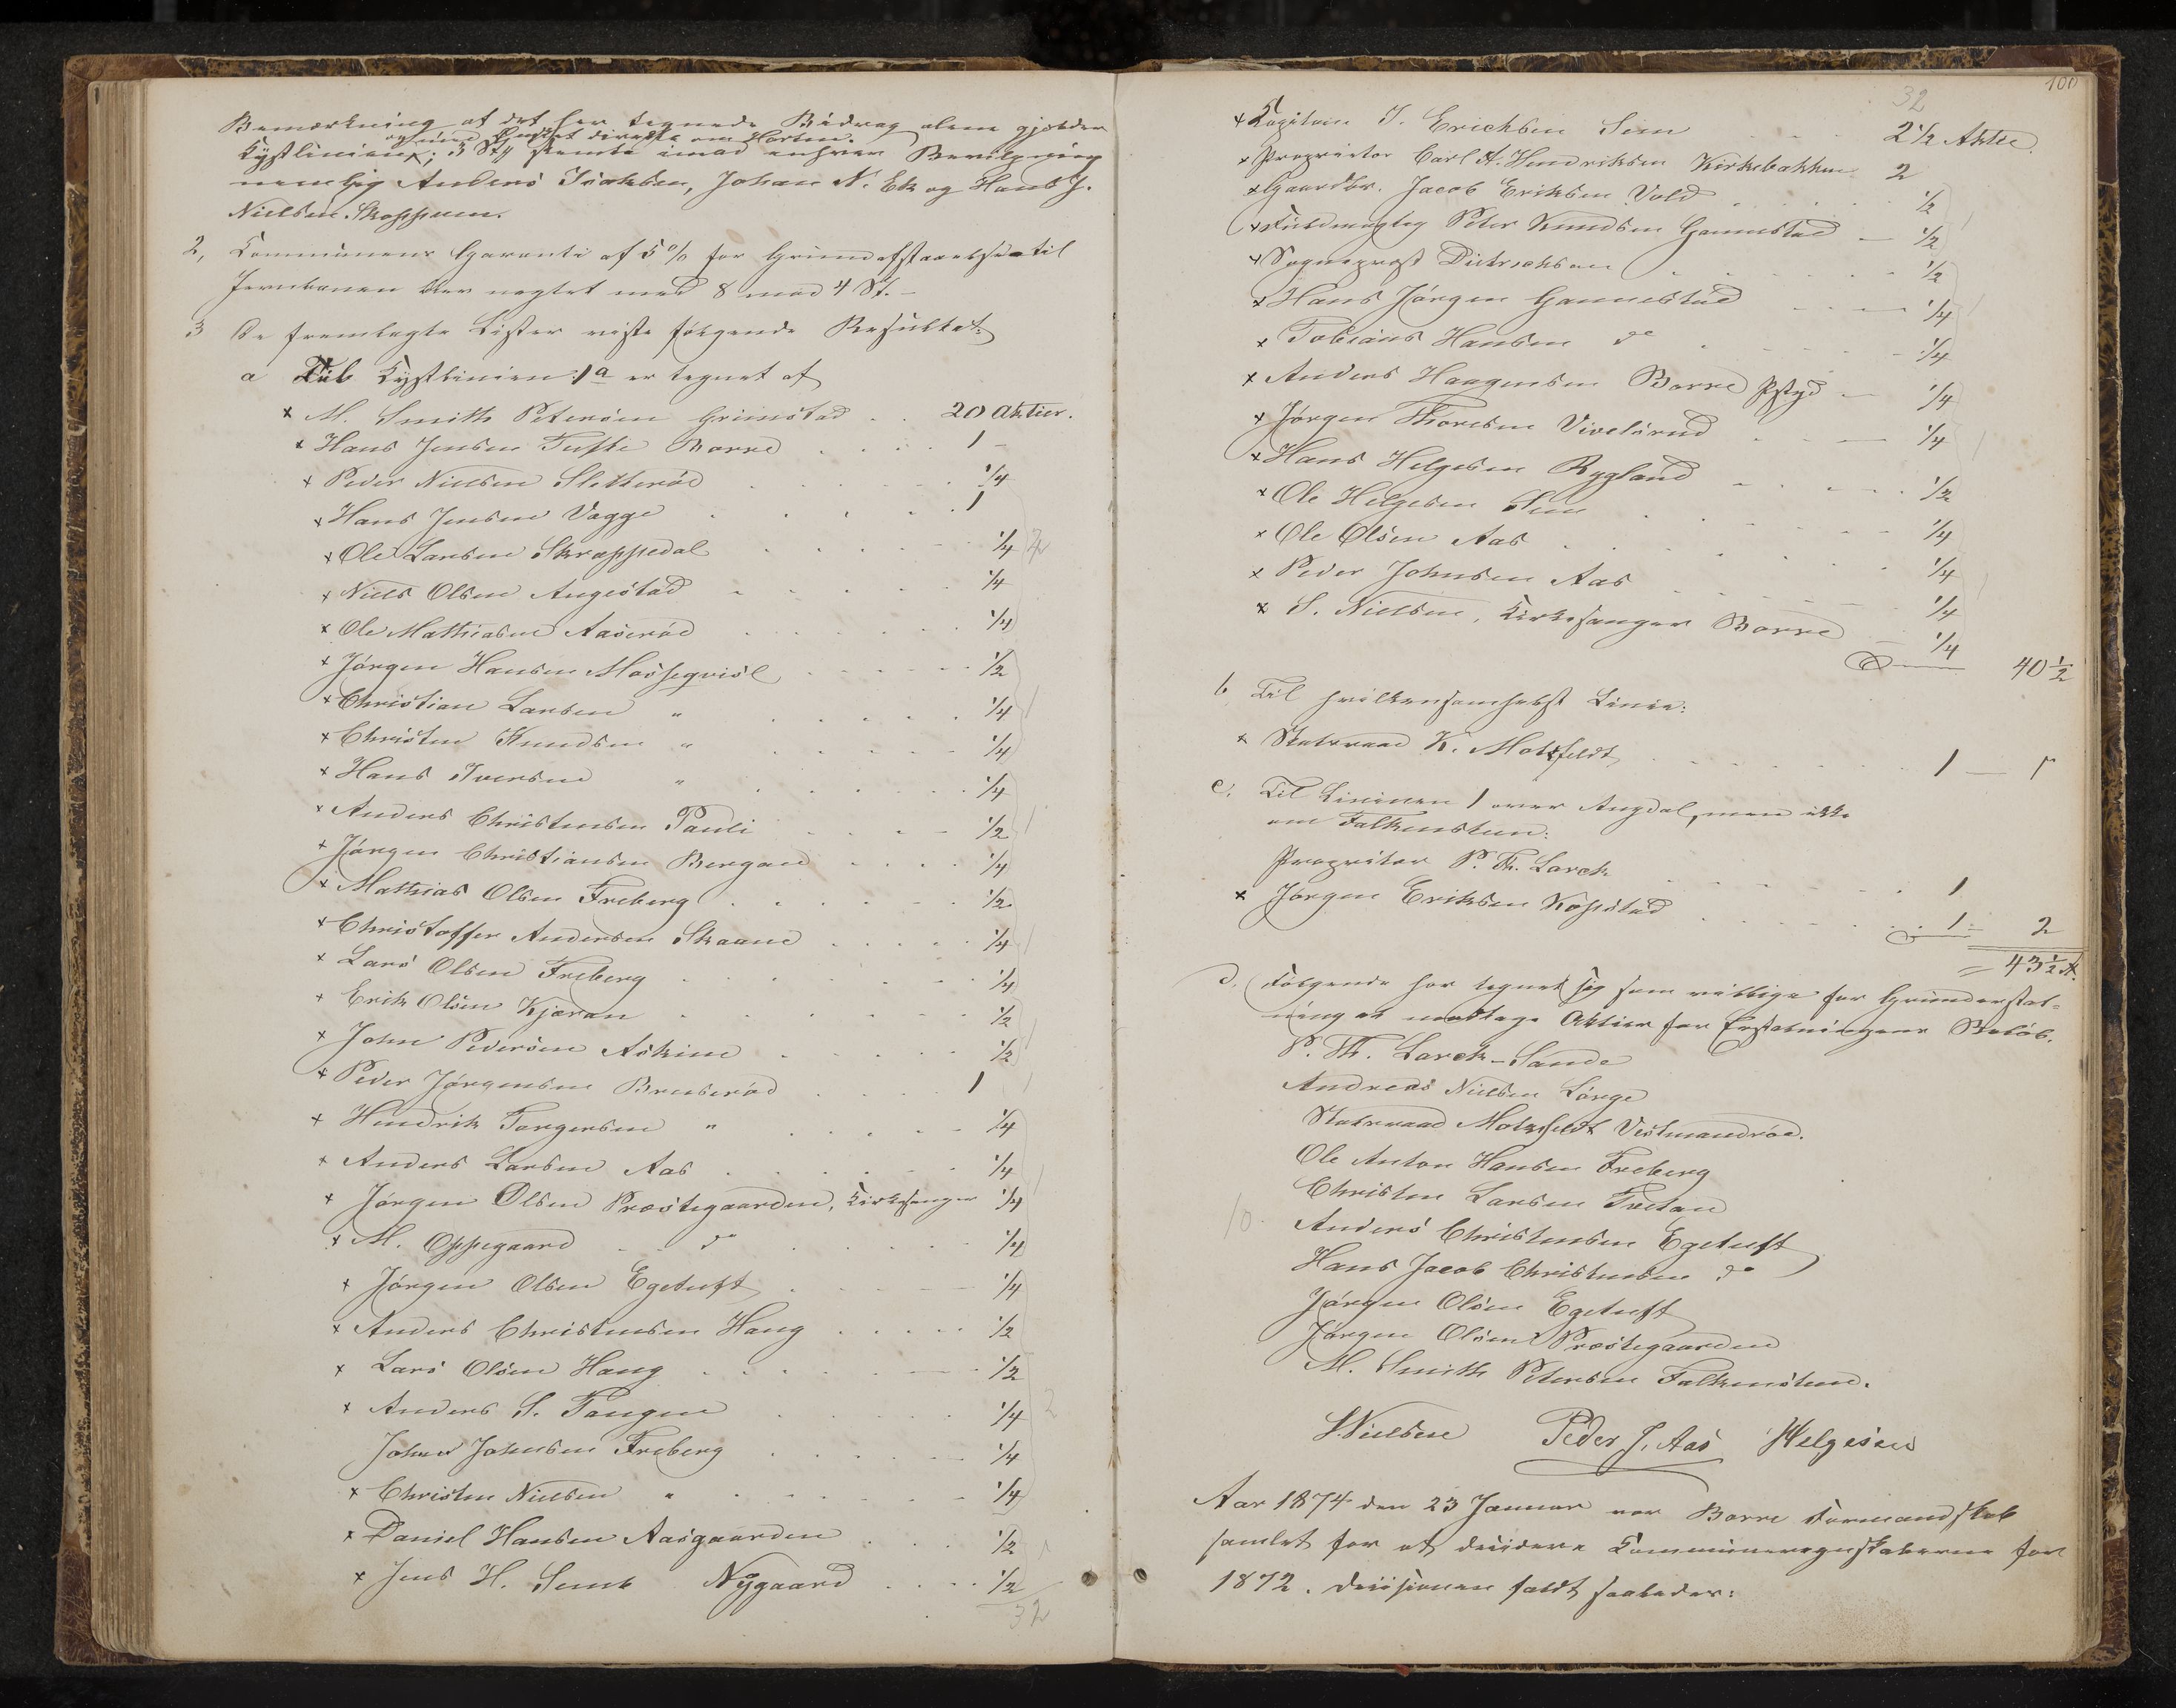 Bemærkning at det her tegnede Bidrag alene gjælder
Kystlinien; 3 St. stemte imod enhver Bevilgning
nemlig Anders Isaksen, Johan N. Ek og Hans J.
Nielsen Skoppum.
2, Communens Garanti af 5% for Grundafstaaelse til
Jernbanen blev negtet med 8 mod 4 St. -
3 De fremlagte Lister viste følgende Resultat:
a Til Kystlinien 1a er tegnet af
x M. Smith Petersen Grimstad . . 20 Aktier.
x Hans Jensen Tufte Borre . . . . 1 -
x Peder Nielsen Sletterød . . . . 1/4
x Hans Jensen Vagge . . . . 1
x Ole Larsen Skrappedal . . . . 1/4
x Niels Olsen Augestad . . . . 1/4
x Ole Mathiasen Aaserød . . . . 1/4
x Jørgen Hansen Masseqvisl . . . . 1/2
x Christian Larsen " . . . . 1/4
x Christen Knudsen " . . . . 1/4
x Hans Iversen " . . . . 1/4
x Anders Christensen Pauli . . . . 1/2
x Jørgen Christiansen Bergan . . . . 1/4
x Mathias Olsen Freberg . . . . 1/2
x Christoffer Andersen Skaane . . . . 1/4
x Lars Olsen Freberg . . . . 1/4
x Erik Olsen Kjæran . . . . 1/2
x John Pedersen Askim . . . . 1/2
x Peder Jørgensen Bruserød . . . . 1
x Hendrik Torgersen " . . . . 1/4
x Anders Larsen Aas . . . . 1/4
x Jørgen Olsen Præstegaarden, Kirkesanger 1/4
x M. Oppegaard do . . . . 1/4
x Jørgen Olsen Egetuft . . . . 1/4
x Anders Christensen Haug . . . . 1/2
x Lars Olsen Haug . . . . 1/2
x Anders S. Tangen . . . . 1/4
Johan Johnsen Freberg . . . . 1/4
x Christen Nielsen " . . . . 1/4
x Daniel Hansen Aasgaarden . . . 1/2
x Jens H. Semb Nygaard . . . . 1/2
32
100
32
x Kapitain J. Erichsen Sem . . . 2 1/2 Aktie.
x Proprietær Carl A. Hendriksen Kirkebakken 2
x Gaardbr. Jacob Eriksen Vold . . . . 1/2
x Fuldmægtig Peter Knudsen Gannestad - 1/2
x Sogneprest Dietrichson . . . . 1/2
x Hans Jørgen Gannestad . . . . 1/4
x Tobias Hansen do . . . . 1/4
x Anders Haagensen Borre 1/4
x Jørgen Thoresen Vivelsrud . . . . 1/4
x Hans Helgesen Rygland . . . . 1/2
x Ole Helgesen Sem . . . . 1/4
x Ole Olsen Aas . . . . 1/4
x Peder Johnsen Aas . . . . 1/4
x S. Nielsen, Kirkesanger Borre - 1/4
40 1/2
b Til hvilkensomhelst Linie:
x Statsraad K. Motzfeldt . . . . 1 — 1
c. Til Linien 1 over Augdal, men ikke
om Falkensten:
Proprietær P. Th. Larch . . . . 1
x Jørgen Eriksen Kopstad . . . . 1 = 2
= 43 1/2 A.
d. Følgende har tegnet sig som villige for Grunderstat-
ning at modtage Aktier for Erstatningens Beløb.
P. Th. Larch - Sande
Andreas Nielsen Lørge
Statsraad Motzfeldt Vestmandrød.
Ole Anton Hansen Freberg
Christen Larsen Fretan
10. Anders Christensen Egetuft
Hans Jacob Christensen do
Jørgen Olsen Egetuft
Jørgen Olsen Præstegaarden
M. Smith Petersen Falkensten.
S. Nielsen Peder J. Aas Helgesen
Aar 1874 den 23 Januar var Borre Formandskab
samlet for at decidere Communeregnskaberne for
1872. Decisionen faldt saaledes: